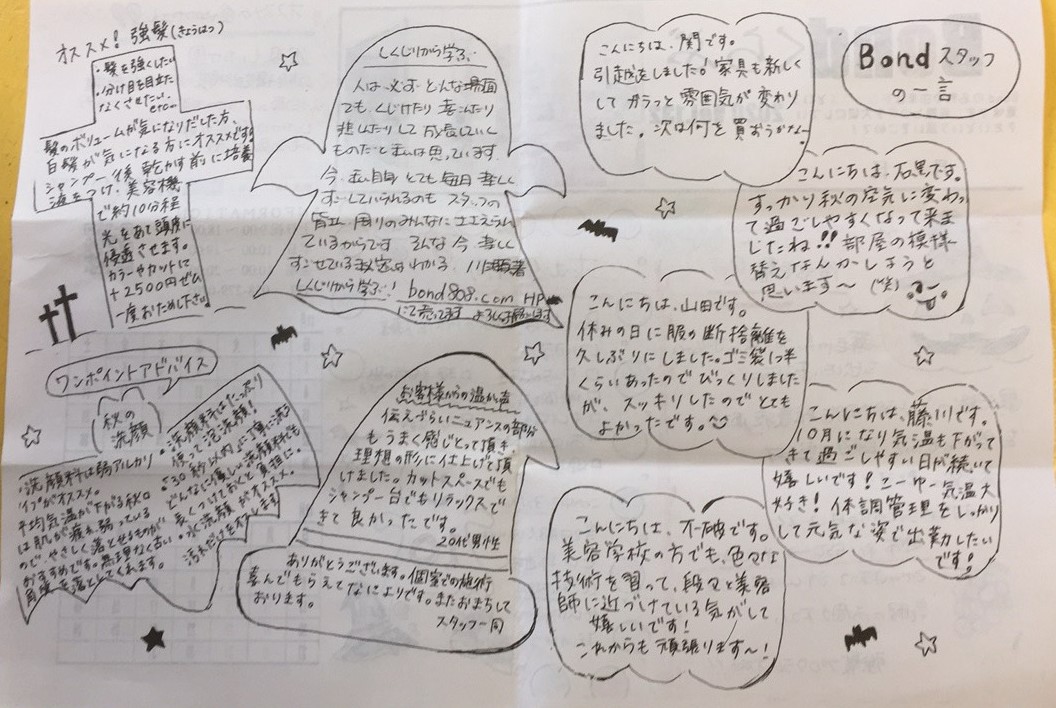 オススメ! 強髪(きょうはつ)
・髪を強くしたい
・分け目を目立た
なくさせたい。
etc...
髪のボリュームが気になりだした方、
白髪が気になる方にオススメです!
シャンプー後、乾かす前に培養
液をつけ、美容機
で約10分程
光をあて頭皮に
浸透させます。
カラーやカットに
+2500円ぜひ
一度おためし下さい
しくじりから学ぶ
人は必ずどんな場面
でもしくじけたり 喜んだり
悲しんだりして成長していく
ものだと私は思っています。
今、私自身とても毎日楽しく
すごしていられるのもスタッフの
皆、周りのみんなに支えられ
ているからです そんな今 楽しく
すごせている秘密はわかる。川畑著
しくじりから学ぶ! bond808.com HP
にて売ってます よろしくお願いします
Bond スタッフ
の一言
こんにちは、関です。
引越をしました!家具も新しく
してガラっと雰囲気が変わり
ました。次は何を買おうかな〜
こんにちは、石黒です。
すっかり秋の空気に変わっ
て過ごしやすくなって来ま
したね!!部屋の模様
替えなんかしようと
思います〜 (笑)
こんにちは、山田です。
休みの日に服の断捨離を
久しぶりにしました。ゴミ袋1つ半
くらいあったのでびっくりしました
が、スッキリしたのでとても
よかったです。
こんにちは、藤川です。
10月になり気温も下がって
きて過ごしやすい日が続いて
嬉しいです!こーゆー気温大
好き!体調管理をしっかり
して元気な姿で出勤したい
です!
こんにちは、不破です。
美容学校の方でも、色々な
技術を習って、段々と美容
師に近づけている気がして
嬉しいです!
これからも頑張ります〜!
ワンポイントアドバイス
秋の
洗顔
洗顔料は弱アルカリ
タイプがオススメ。
平均気温が下がる秋口
は肌が疲れ弱っている
のでやさしく落とせるものが
おすすめです。無理なく古い
角質も落としてくれます。
・洗顔料はたっぷり
使って泡洗顔!
・30秒以内が丁寧に流す
どんなに優しい洗顔料でも
長くつけておくと負担に。
・水洗顔がオススメ。
汚れだけをおとします
お客様からの温かい声
伝えづらいニュアンスの部分
もうまく感じとって頂き、
理想の形に仕上げて頂
けました。カットスペースでも
シャンプー台でもリラックスで
きて良かったです。
20代男性
ありがとうございます。個室での施術
喜んでもらえてなによりです。またおまちして
おります。
スタッフ一同